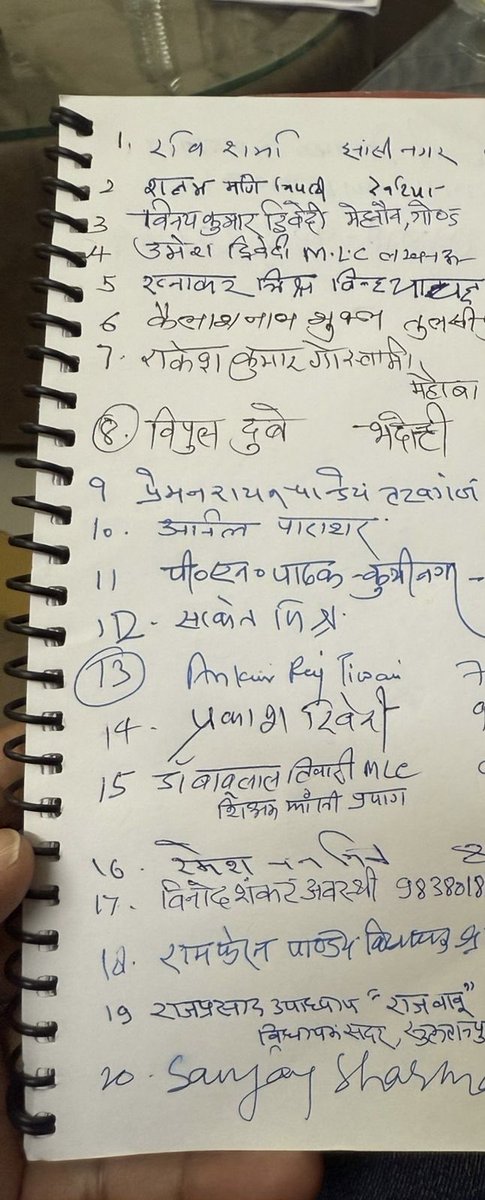 1. रवि शर्मा झांसी नगर
2 शलभ मणि त्रिपाठी देवरिया
3 विनय कुमार द्विवेदी मेहनौन, गोण्ड
4 उमेश द्विवेदी M.L.C लखनऊ
5 रत्नाकर मिश्र
6 कैलाश नाथ शुक्ल तुलसी
7. राकेश कुमार गोस्वामी,
महोबा
8. विपुल दुबे भदोही
9 प्रेमनरायन पाण्डेय तरबगंज
10. अनिल पाराशर
11 पी०एन०पाठक कुशीनगर
12. साकेत मिश्र.
13 Ankur Raj Tiwari 7
14. प्रकाश द्विवेदी 9
15 डॉ बाबूलाल तिवारी MLC
झांसी प्रयाग
16. रमेश मिश्र
17. विनोद शंकर अवस्थी 9838018
18. पाण्डेय
19 राजप्रसाद उपाध्याय "राज बाबू"
सदर,
20. Sanjay Sharma